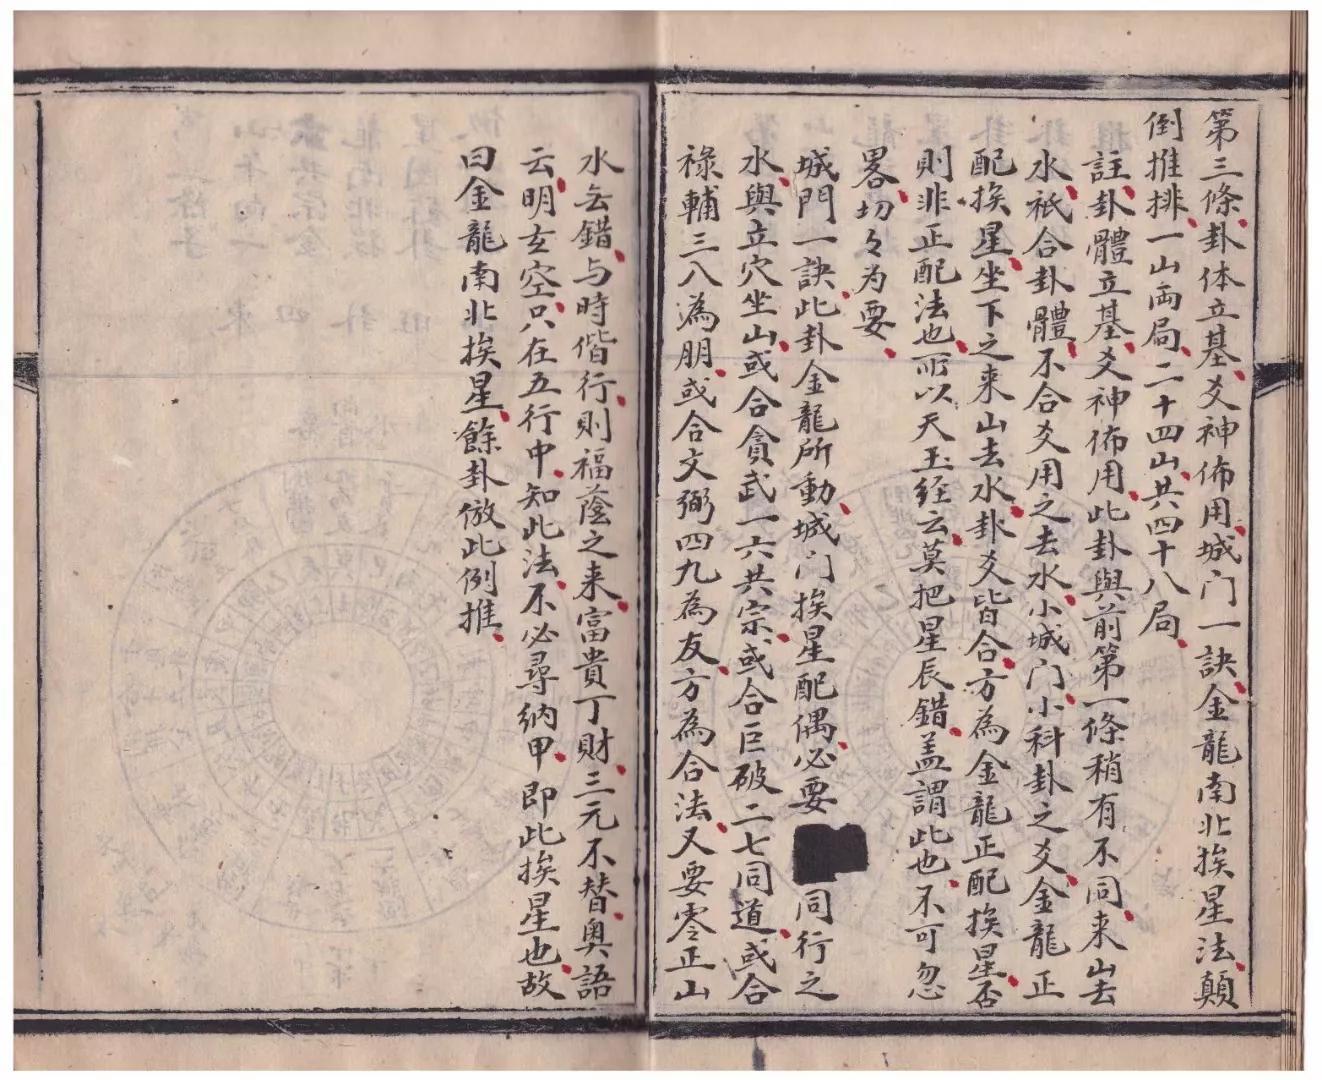 第三條卦体立基爻神佈用城门一訣金龍南北挨星法顛
倒推排一山両局二十四山共四十八局
註卦體立基爻神佈用此卦與前第一條稍有不同来山去
水祇合卦體不合爻用之去水小城门小科卦之爻金龍正
配挨星坐下之来山去水卦爻皆合方為金龍正配挨星否
則非正配法也所以天玉经云莫把星辰錯盖謂此也不可忽
畧切々为要
城門一訣此卦金龍所動城门挨星配偶必要同行之
水與立穴坐山或合貪武一六共宗或合巨破二七同道或合
祿輔三八為朋或合文弼四九為友方為合法又要零正山
水无錯与時偕行則福蔭之来富貴丁財三元不替奥語
云明玄空只在五行中知此法不必尋納甲即此挨星也故
曰金龍南北挨星餘卦倣此例推